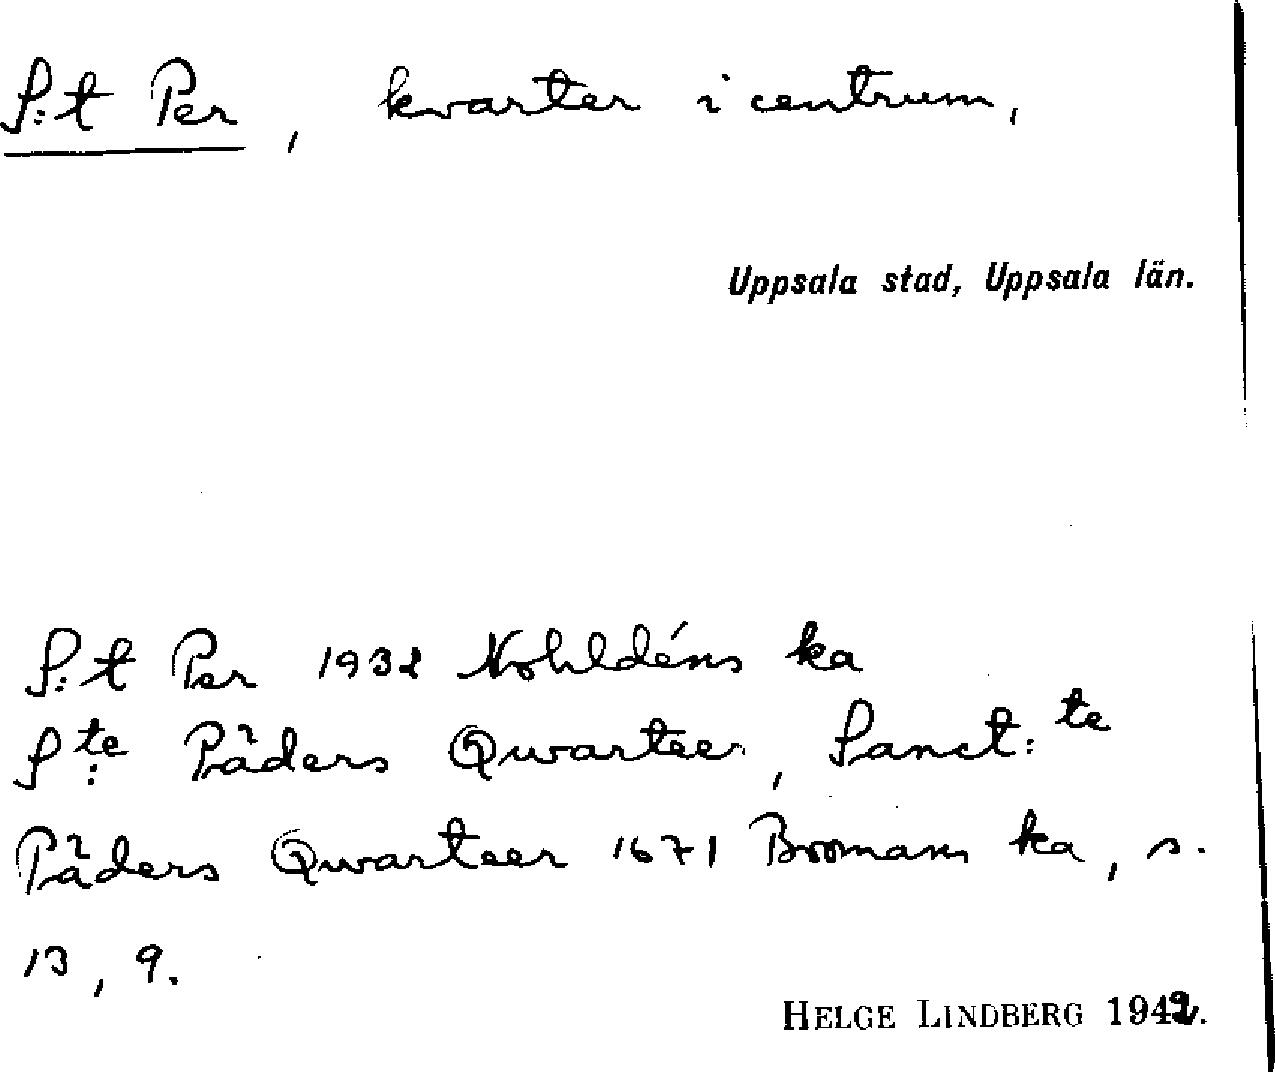 S:t Per, kvarter i centrum,
Uppsala stad, Uppsala län.
S:t Per 1932 Nohldéns ka
S:te Päders Qwarteer, Sanct:te
Päders Qwarteer 1671 Bromans ka, s.
13, 9.
HELGE LINDBERG 1942.